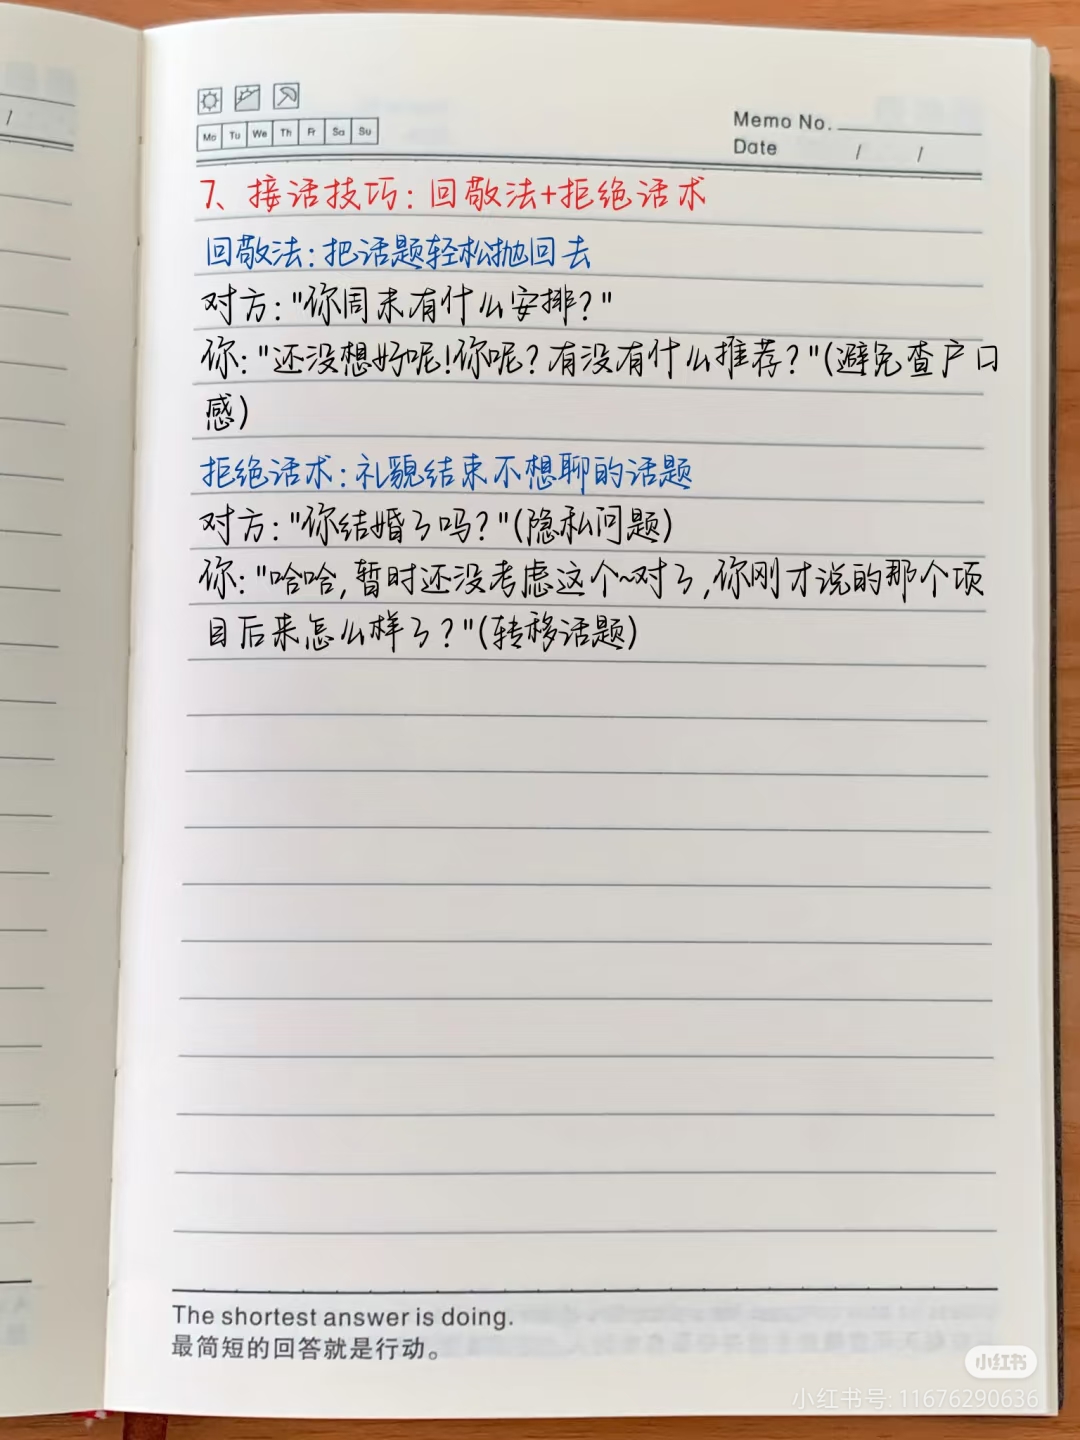 Mo Tu We Th Fr Sa Su
Memo No.
Date / /
/
7、接话技巧：回敬法+拒绝话术
回敬法：把话题轻松抛回去
对方："你周末有什么安排？"
你："还没想好呢！你呢？有没有什么推荐？"(避免查户口
感)
拒绝话术：礼貌结束不想聊的话题
对方："你结婚了吗？"(隐私问题)
你："哈哈，暂时还没考虑这个~对了，你刚才说的那个项
目后来怎么样了？"(转移话题)
The shortest answer is doing.
最简短的回答就是行动。
小红书
小红书号: 11676290636